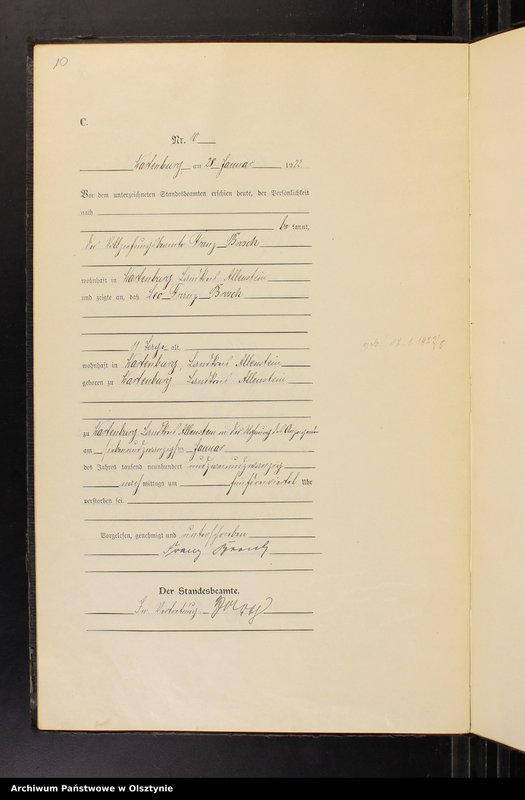 10
C.
Nr. 10
Wartenburg am 28 Januar 1922
Vor dem unterzeichneten Standesbeamten erschien heute, der Persönlichkeit
nach
be kannt,
der Vollziehungsbeamte Franz Brosch
wohnhaft in Wartenburg Landkreis Allenstein
und zeigte an, daß Leo Franz Brosch
11 Tage alt,
wohnhaft in Wartenburg, Landkreis Allenstein
geboren zu Wartenburg Landkreis Allenstein
zu Wartenburg Landkreis Allenstein in der Wohnung des Anzeigenden
am siebenundzwanzigsten Januar
des Jahres tausend neunhundert undzweiundzwanzig
nach mittags um Uhr
verstorben sei.
Vorgelesen, genehmigt und unterschrieben
Franz Brosch
Der Standesbeamte.
In Vertretung
Archiwum Państwowe w Olsztynie